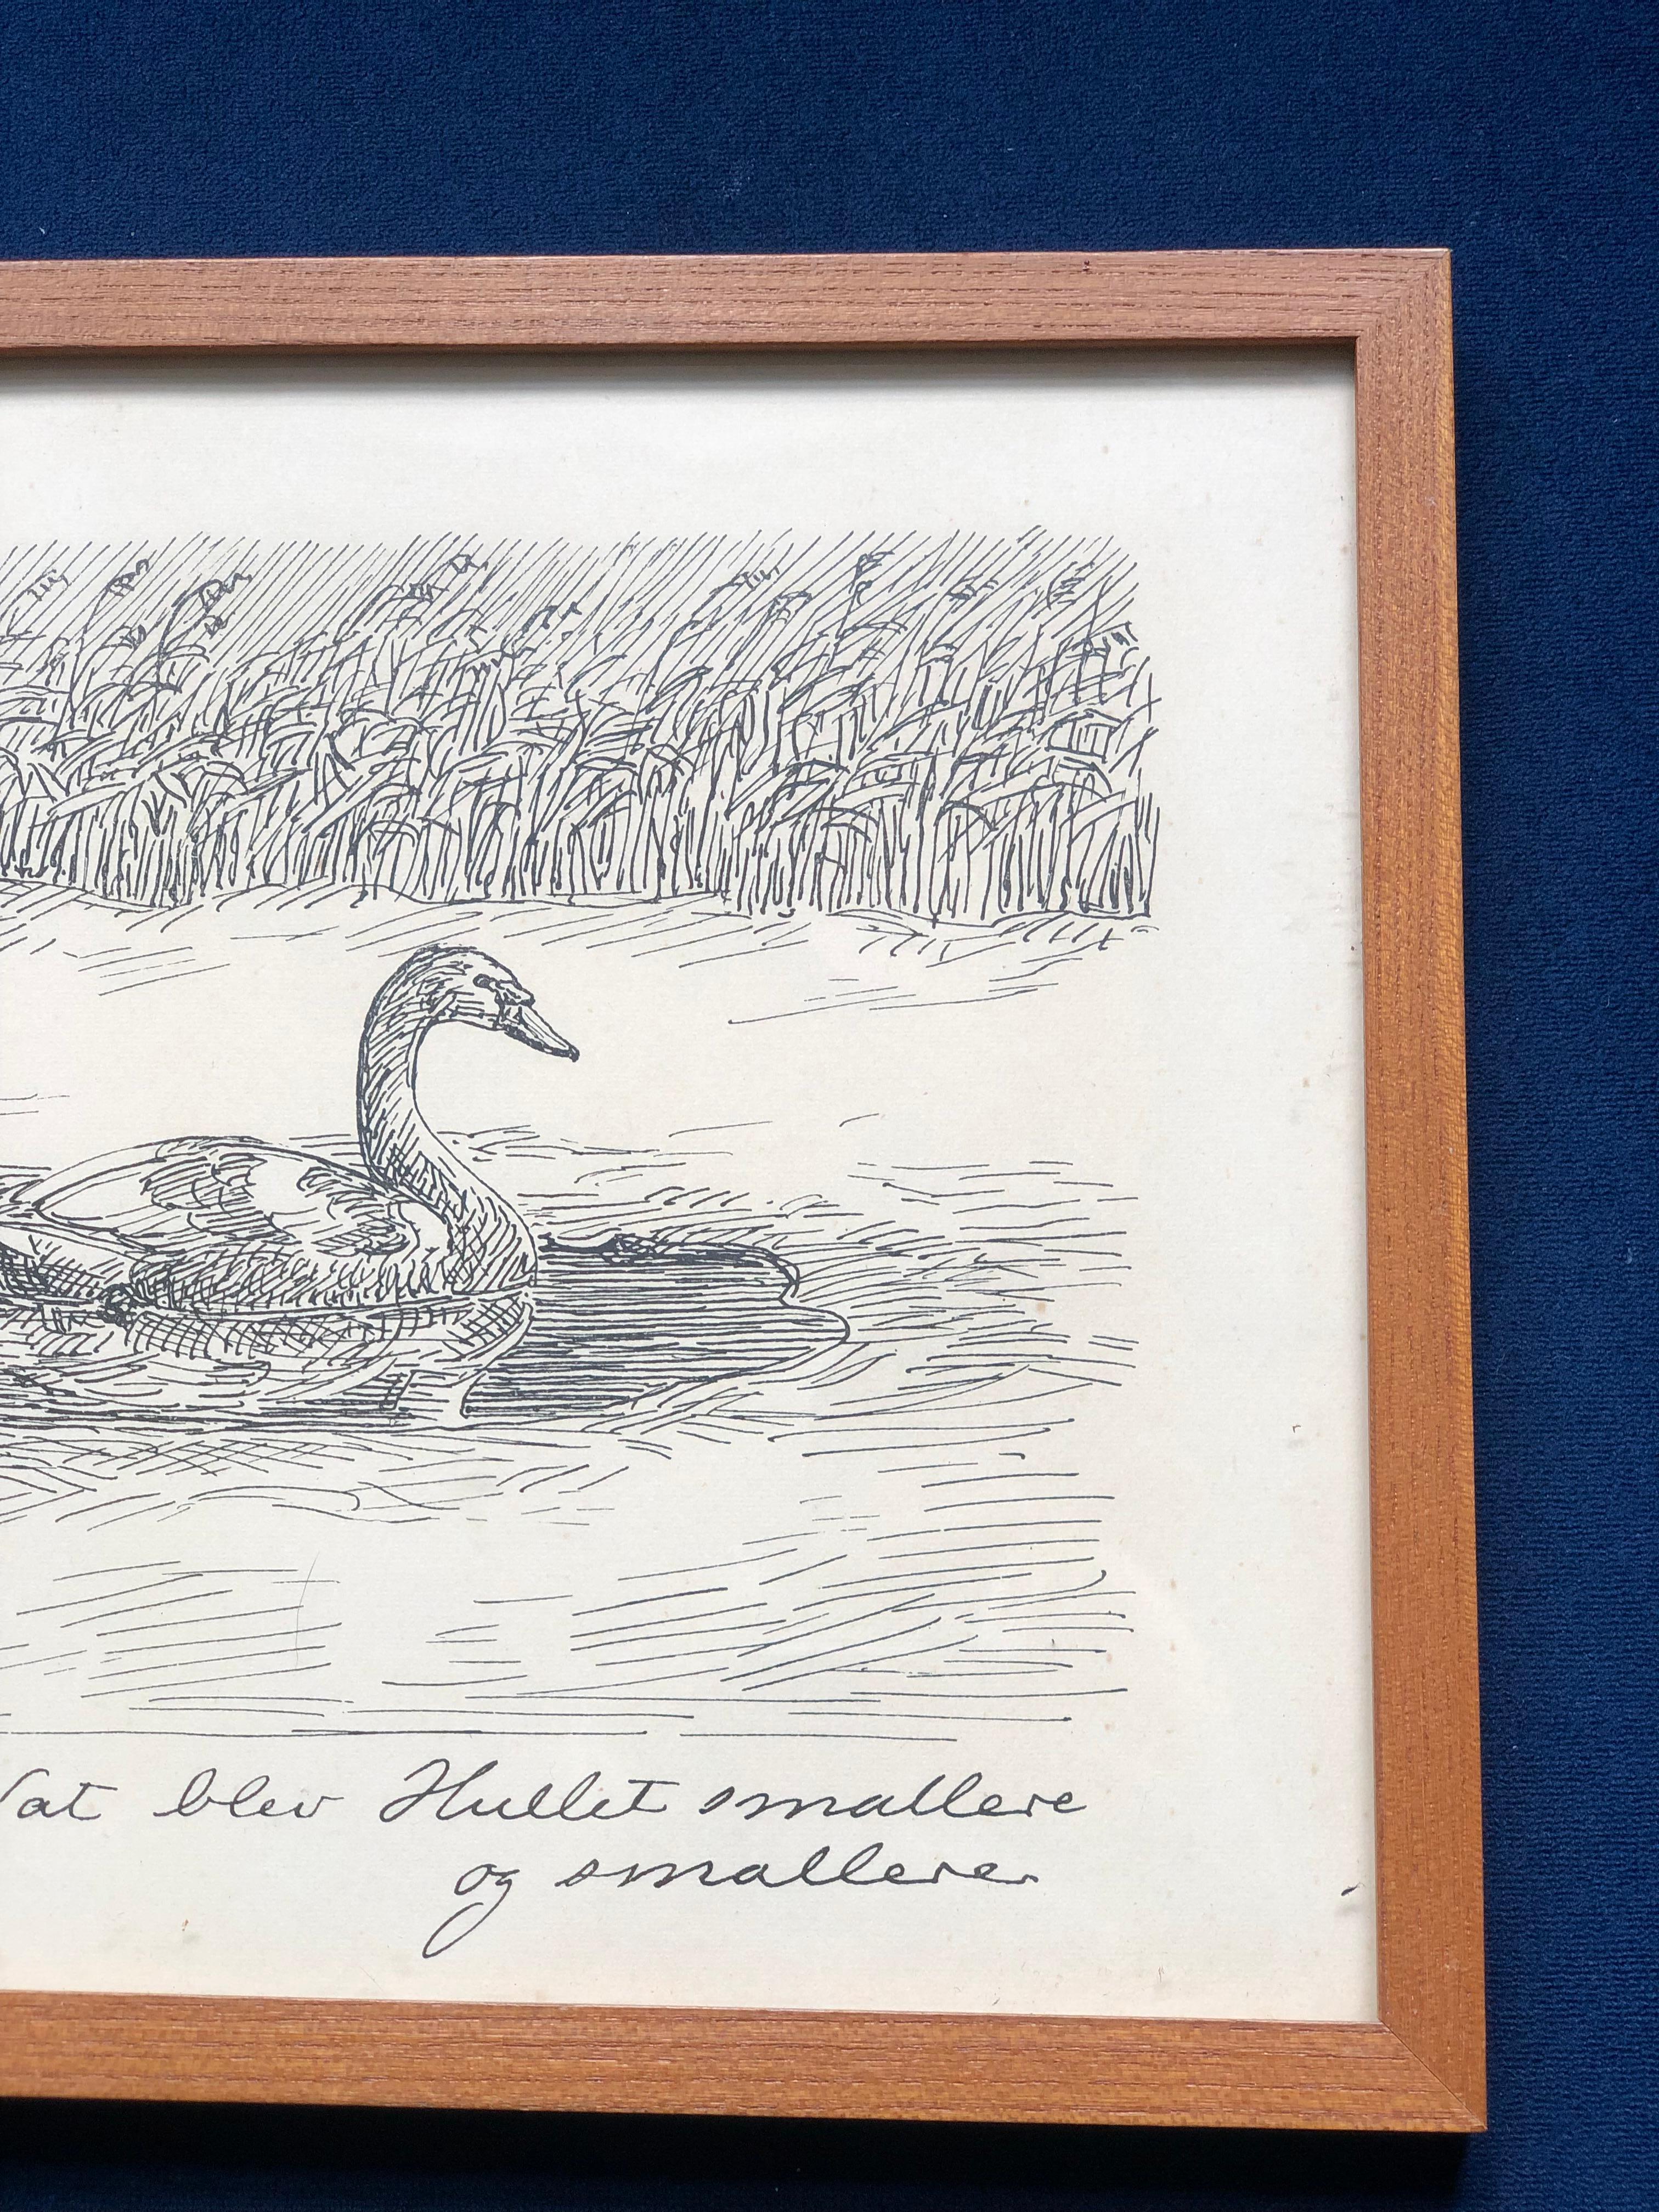 Nat blev Hullet smallere
og smallere.